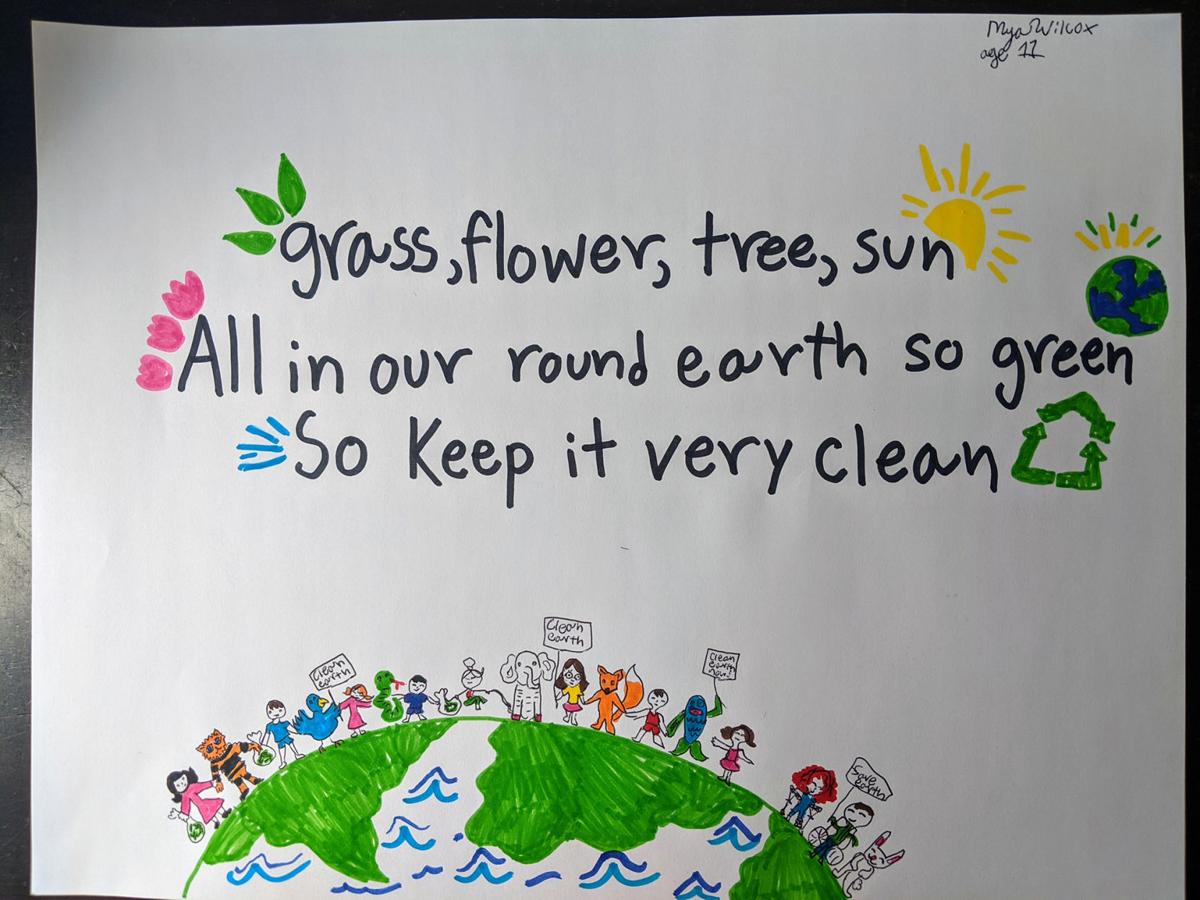 Mya Wilcox
age 11
grass, flower, tree, sun
All in our round earth so green
So Keep it very clean
Clean
earth
Clean
earth
Clean
earth
now!
Save
earth